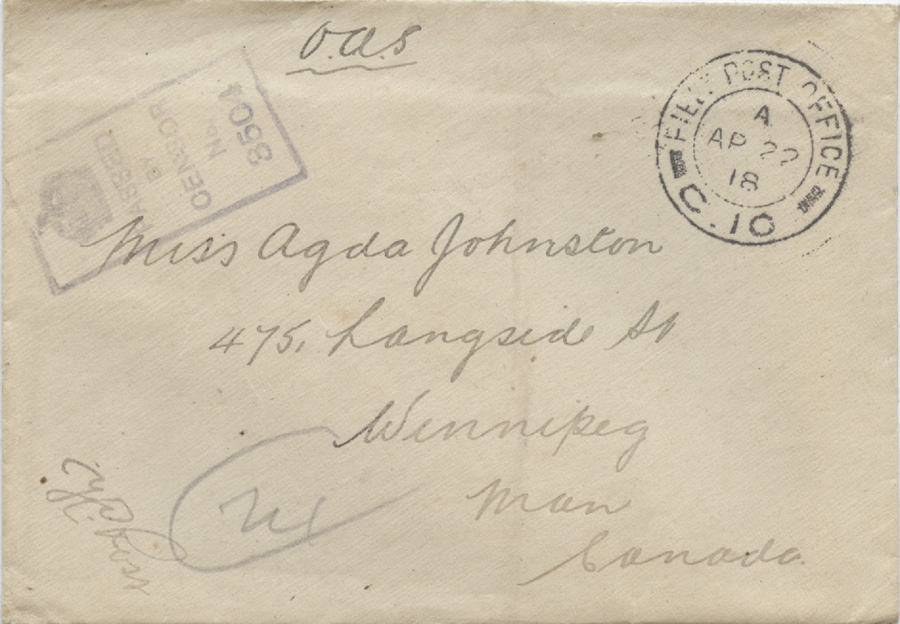 O.A.S
PASSED
BY
CENSOR
No. 3504
FIELD POST OFFICE
A
AP 22
18
C.10
Miss Agda Johnston
475, Langside St
Winnipeg
Man
Canada